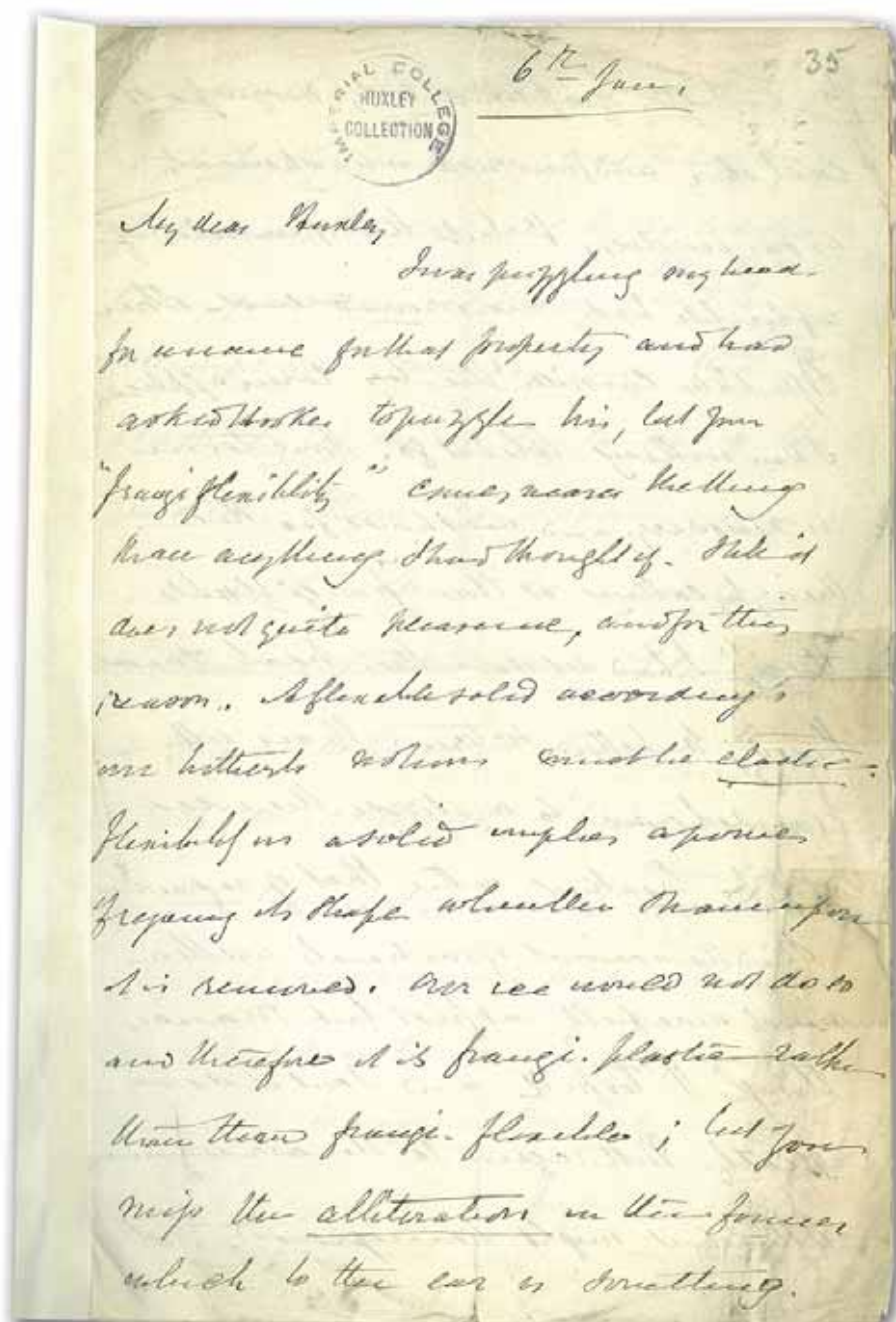 35
6th Jan.
IMPERIAL COLLEGE
HUXLEY
COLLECTION
My dear Huxley
I was puzzling my head
for a name for that property and had
asked Hooker to puzzle his, but your
"frangi flexiblity" comes nearer the thing
than anything I had thought of. Still it
does not quite please me, and for this
reason. A flexible solid according to
our hitherto notions must be elastic -
flexibility in a solid implies a power
of regaining its shape when the
it is removed. Our ice would not do so
and therefore it is frangi-plastic rather
than than frangi-flexible; but you
miss the alliteration in the former
which to the ear is something.